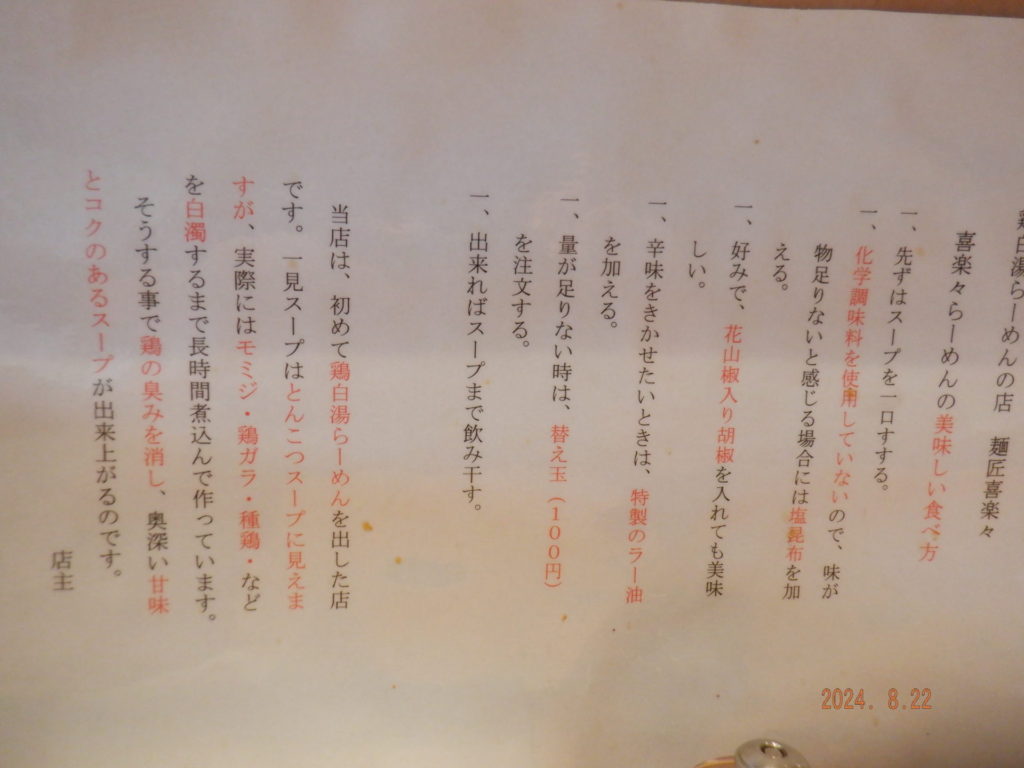 鶏白湯らーめんの店　麺匠喜楽々
喜楽々らーめんの美味しい食べ方
一、先ずはスープを一口すする。
一、化学調味料を使用していないので、味が
物足りないと感じる場合には塩昆布を加
える。
一、好みで、花山椒入り胡椒を入れても美味
しい。
一、辛味をきかせたいときは、特製のラー油
を加える。
一、量が足りない時は、替え玉（１００円）
を注文する。
一、出来ればスープまで飲み干す。
当店は、初めて鶏白湯らーめんを出した店
です。一見スープはとんこつスープに見えま
すが、実際にはモミジ・鶏ガラ・種鶏・など
を白濁するまで長時間煮込んで作っています。
そうする事で鶏の臭みを消し、奥深い甘味
とコクのあるスープが出来上がるのです。
店主
2024. 8.22